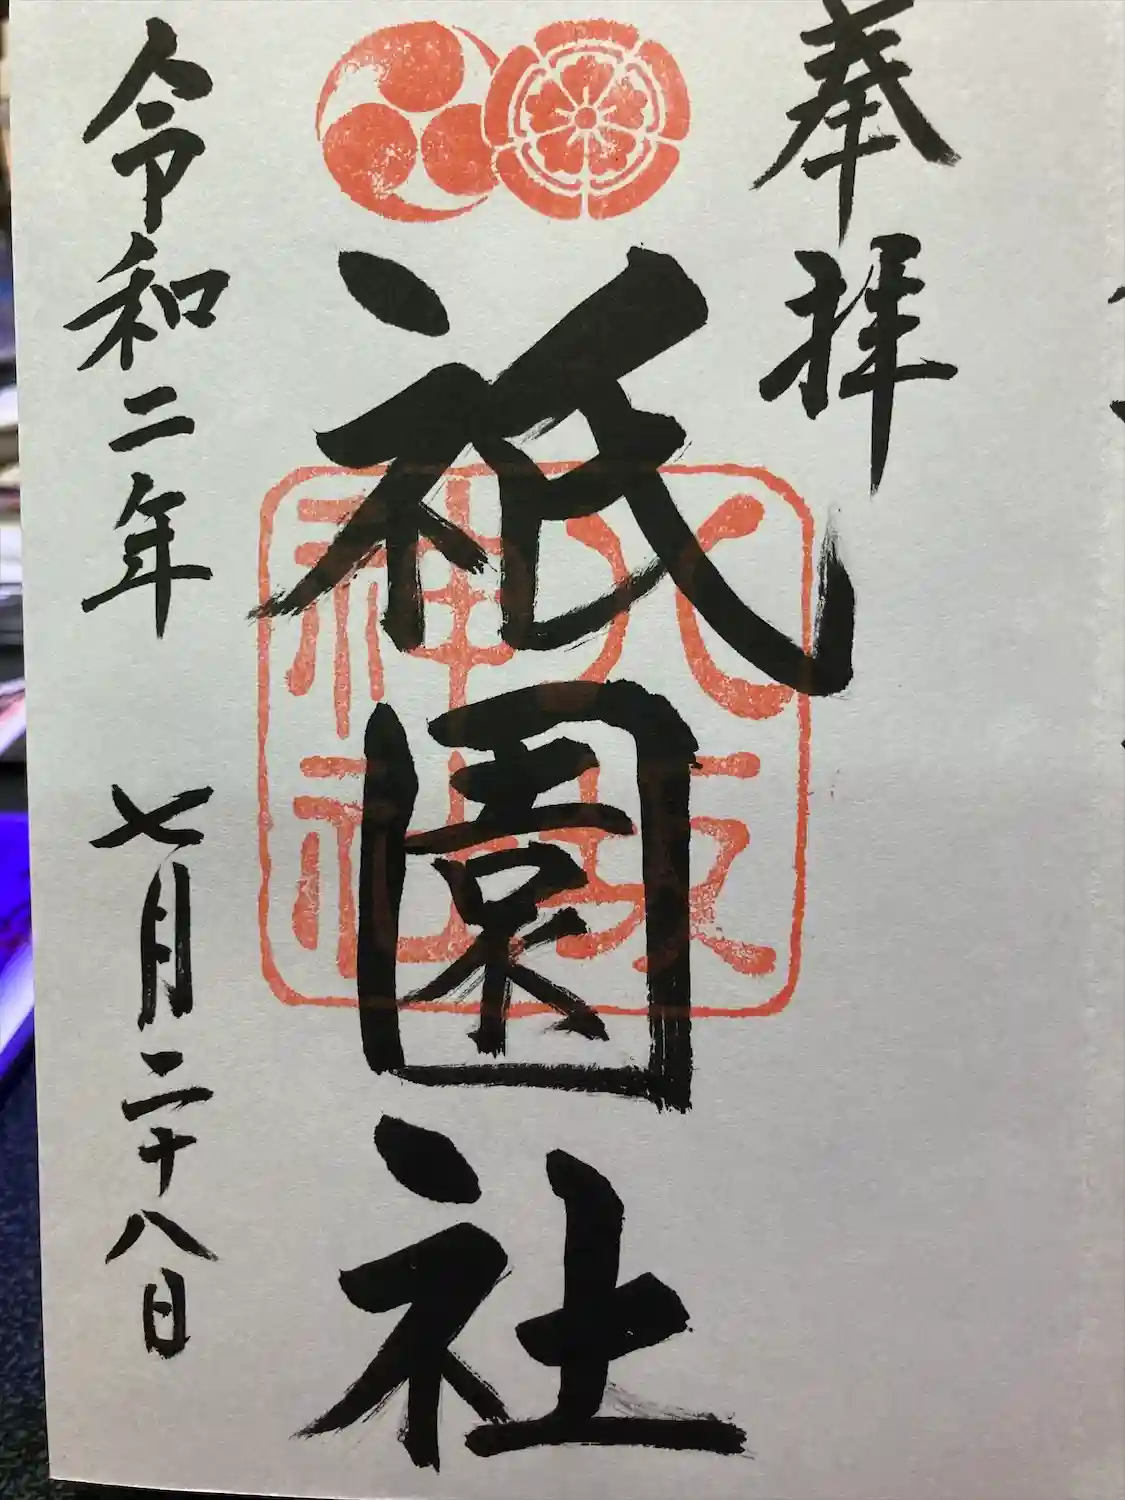 奉拝
祇園社
八坂
神社
令和二年 七月二十八日